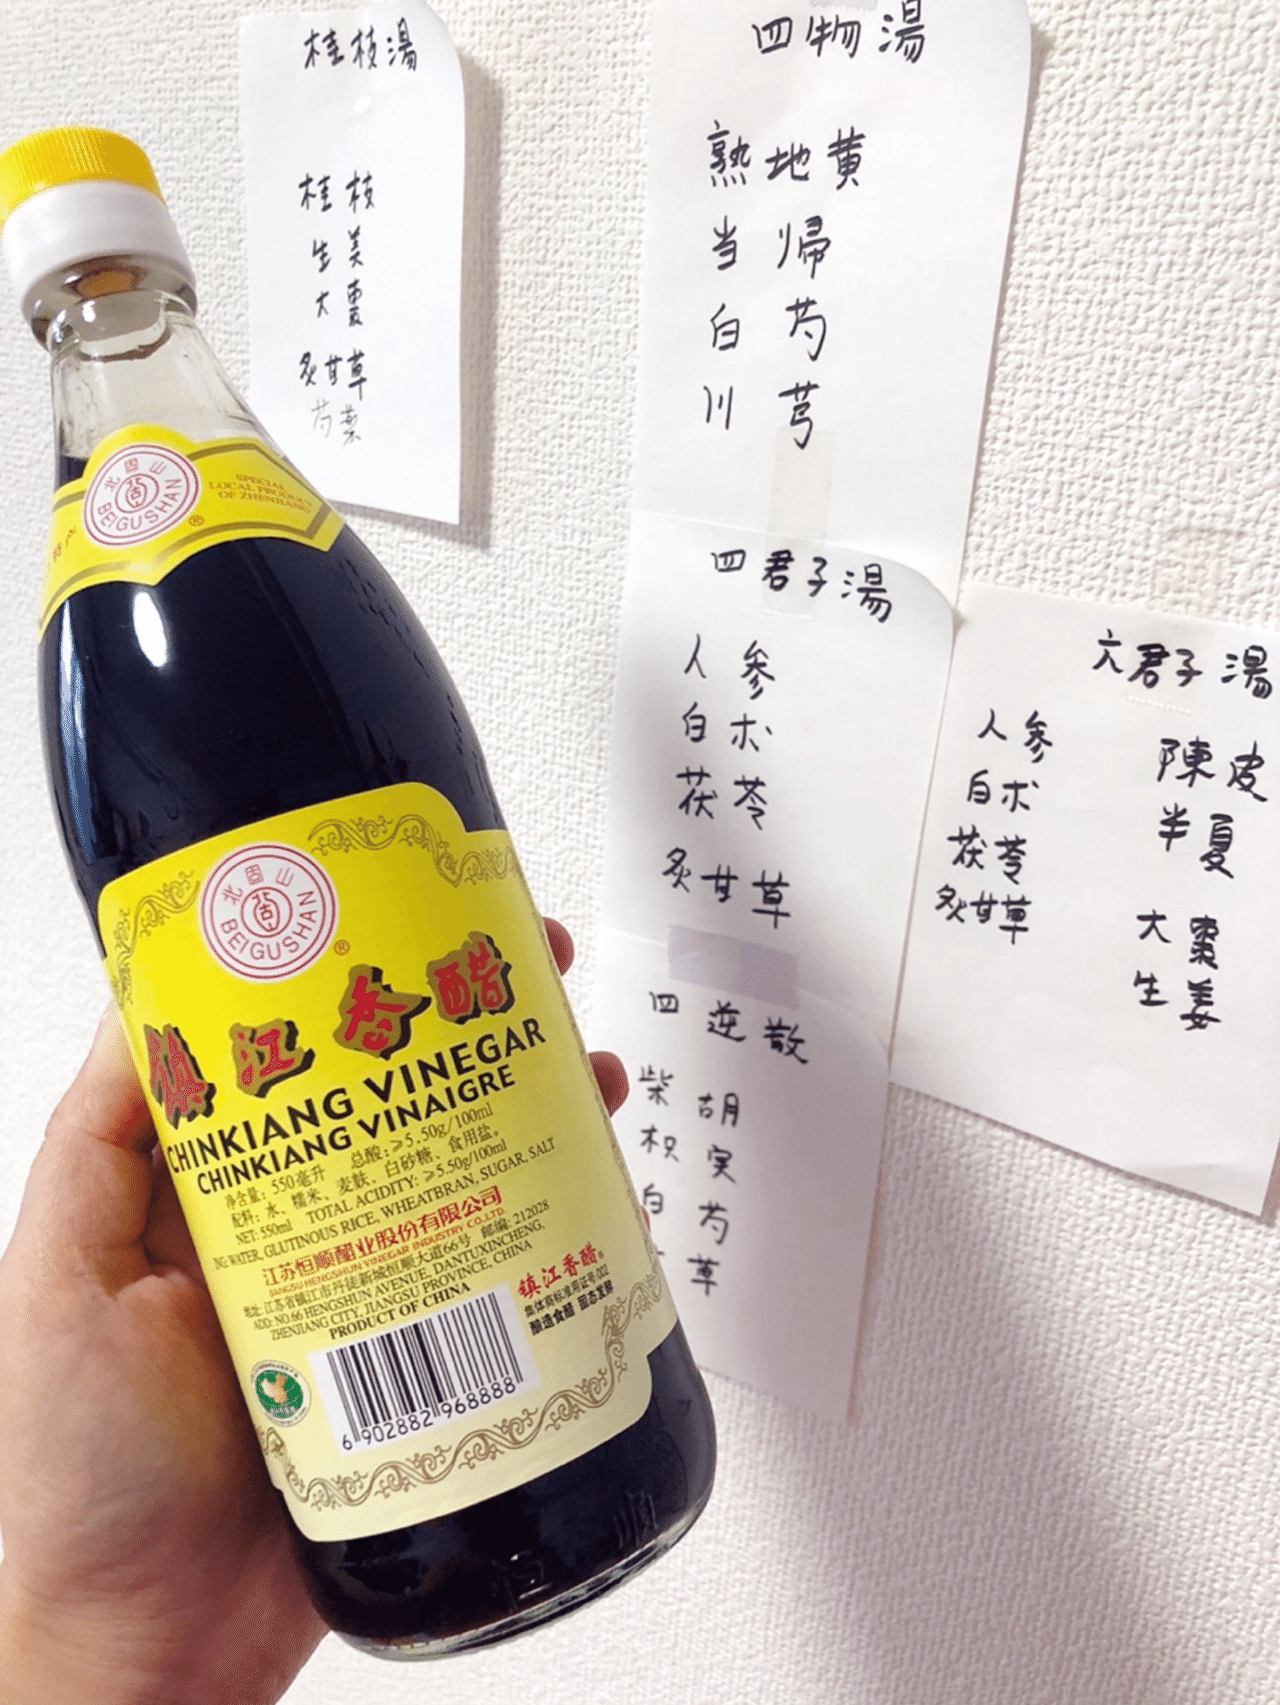 桂枝湯
桂枝
生姜
大棗
炙甘草
芍薬
四物湯
熟地黄
当帰
白芍
川芎
四君子湯
人参
白朮
茯苓
炙甘草
六君子湯
人参
白朮
茯苓
炙甘草
陳皮
半夏
大棗
生姜
四逆散
柴胡
枳実
白芍
草
北固山
BEIGUSHAN
®
SPECIAL
LOCAL PRODUCT
OF ZHENJIANG
北固山
BEIGUSHAN
®
镇江香醋
CHINKIANG VINEGAR
CHINKIANG VINAIGRE
净含量: 550毫升 总酸: ≥5.50g/100ml
配料: 水、糯米、麦麸、白砂糖、食用盐。
NET: 550ml TOTAL ACIDITY: ≥5.50g/100ml
ING: WATER, GLUTINOUS RICE, WHEATBRAN, SUGAR, SALT
江苏恒顺醋业股份有限公司
JIANGSU HENGSHUN VINEGAR INDUSTRY CO.,LTD.
地址: 江苏省镇江市丹徒新城恒顺大道66号 邮编: 212028
ADD: NO.66 HENGSHUN AVENUE, DANTUXINCHENG,
ZHENJIANG CITY, JIANGSU PROVINCE, CHINA
PRODUCT OF CHINA
镇江香醋®
集体商标准用证号:002
酿造食醋 固态发酵
6 902882 968888